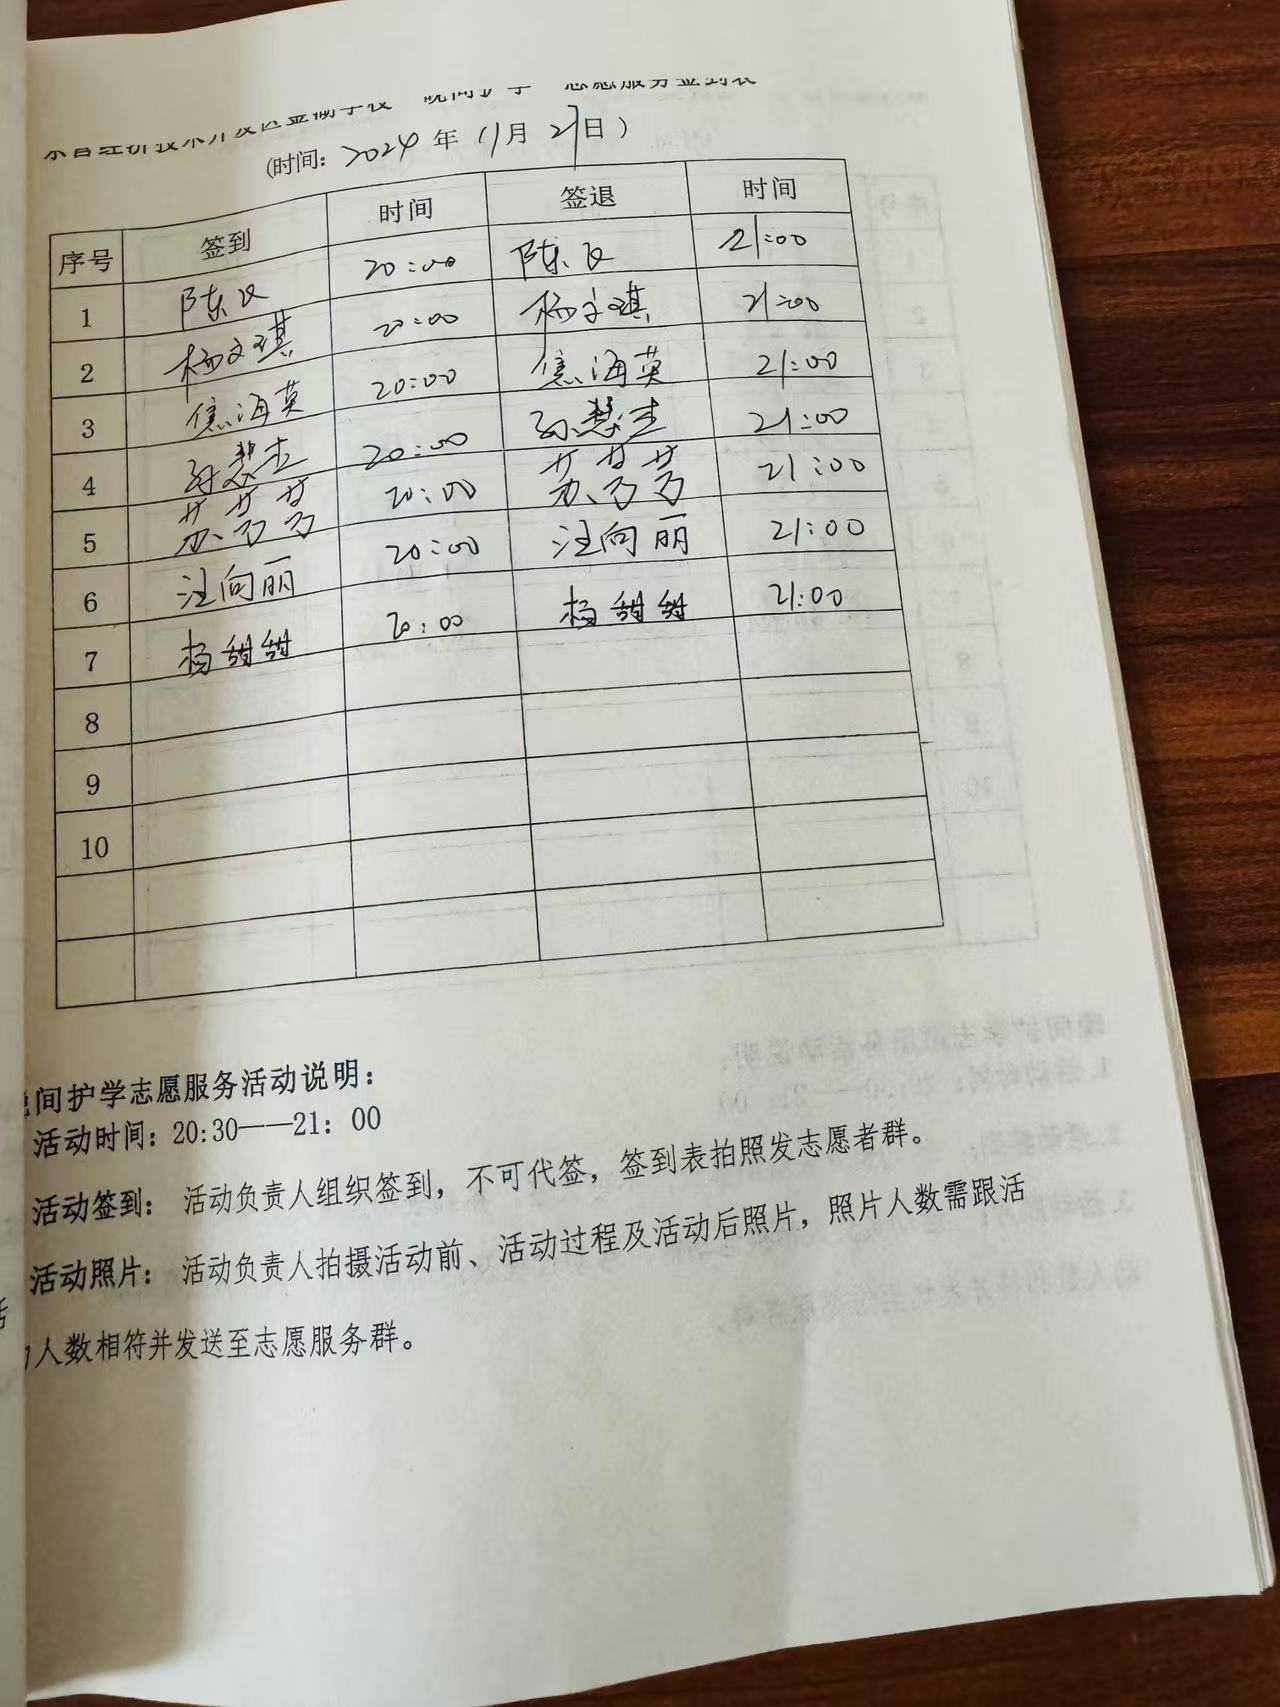 (时间: 2024 年 11月 27日)
序号 签到 时间 签退 时间
1 陈 20:00 陈 21:00
2 杨文琪 20:00 杨文琪 21:00
3 焦海英 20:00 焦海英 21:00
4 孙慧 20:00 孙慧 21:00
5 苏芳芳 20:00 苏芳芳 21:00
6 汪向丽 20:00 汪向丽 21:00
7 杨甜甜 20:00 杨甜甜 21:00
8
9
10
间护学志愿服务活动说明:
活动时间: 20:30——21: 00
活动签到: 活动负责人组织签到, 不可代签, 签到表拍照发志愿者群。
活动照片: 活动负责人拍摄活动前、活动过程及活动后照片, 照片人数需跟活
人数相符并发送至志愿服务群。